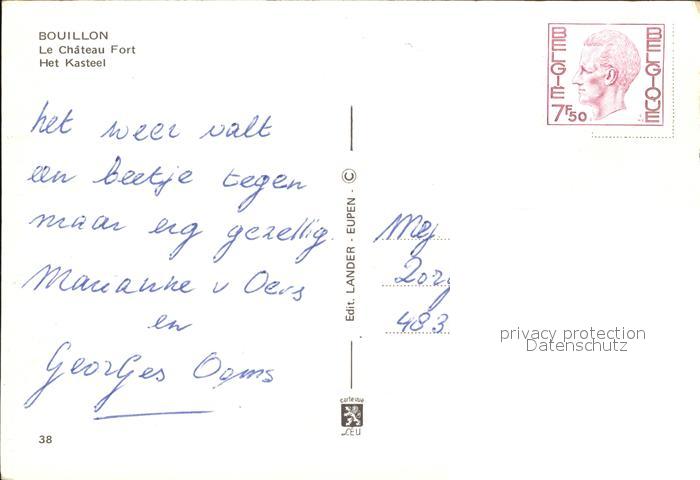 BOUILLON
Le Château Fort
Het Kasteel
BELGIË
BELGIQUE
7F50
het weer valt
een beetje tegen
maar erg gezellig.
Marianne v Oers
en
Georges Ooms
Edit. LANDER - EUPEN - ©
Mej
483
privacy protection
Datenschutz
carte vue
LEU
38